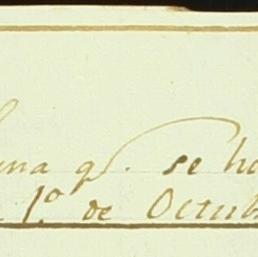 q.^e se ha
1.º de Octub